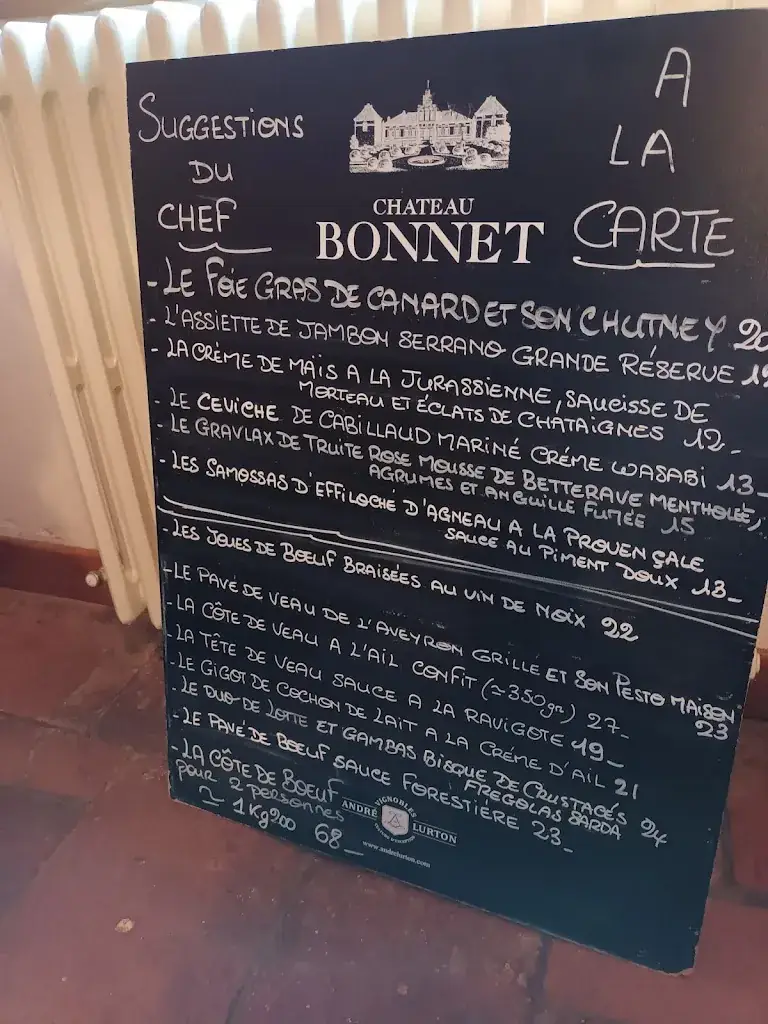 SUGGESTIONS
DU
CHEF
CHATEAU
BONNET
A
LA
CARTE
- LE FOIE GRAS DE CANARD ET SON CHUTNEY 20
- L'ASSIETTE DE JAMBON SERRANO GRANDE RÉSERVE
- LA CRÈME DE MAÏS A LA JURASSIENNE, SAUCISSE DE
MORTEAU ET ÉCLATS DE CHATAIGNES 12-
- LE CEVICHE DE CABILLAUD MARINÉ CRÉME WASABI 13-
- LE GRAVLAX DE TRUITE ROSE MOUSSE DE BETTERAVE MENTHOLÉE,
AGRUMES ET ANGUILLE FUMÉE 15
- LES SAMOSSAS D'EFFILOCHÉ D'AGNEAU A LA PROVENÇALE
SAUCE AU PIMENT DOUX 13-
- LES JOUES DE BOEUF BRAISÉES AU VIN DE NOIX 22
- LE PAVÉ DE VEAU DE L'AVEYRON GRILLE ET SON PESTO MAISON
23
- LA CÔTE DE VEAU A L'AIL CONFIT (~350gr) 27-
- LA TÊTE DE VEAU SAUCE A LA RAVIGOTE 19-
- LE GIGOT DE COCHON DE LAIT A LA CRÉME D'AIL 21
- LE DUO DE LOTTE ET GAMBAS BISQUE DE CRUSTACÉS
FREGOLAS SARDA 24
- LE PAVÉ DE BOEUF SAUCE FORESTIÉRE 23-
- LA CÔTE DE BOEUF
pour 2 personnes
~ 1Kg200 68-
VIGNOBLES
ANDRÉ LURTON
www.andrelurton.com